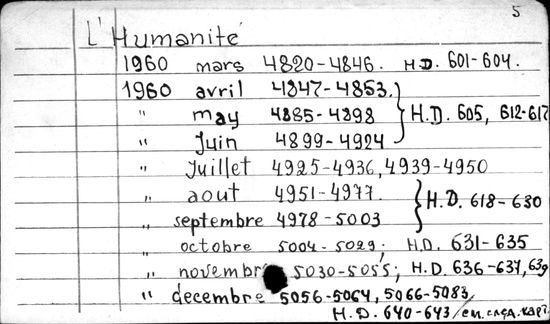 5
L'Humanité
1960 mars 4820-4846. H.D. 601-604.
1960 avril 4847-4853.
" may 4885-4898 H.D. 605, 612-617
" Juin 4899-4924
" Juillet 4925-4936, 4939-4950
" aout 4951-4977.
" septembre 4978-5003 H.D. 618-630
" octobre 5004-5029; H.D. 631-635
" novembre 5030-5055; H.D. 636-637, 639
" decembre 5056-5064, 5066-5083,
H.D. 640-643 / см. след. карт